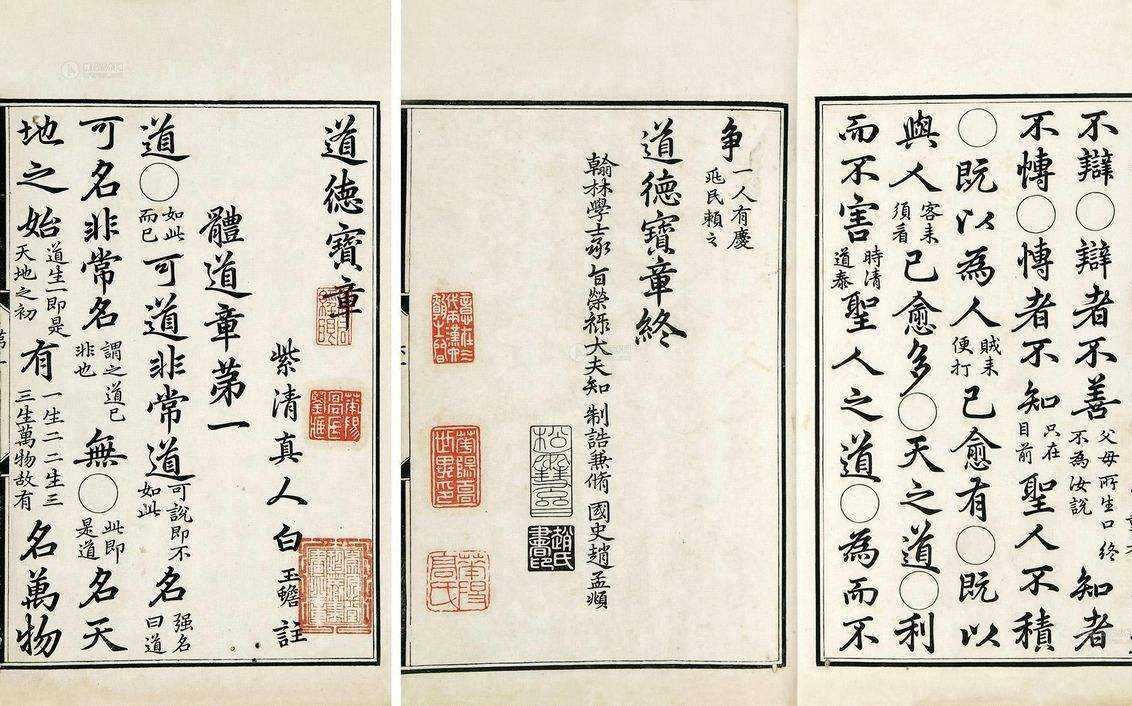 道德寶章
紫清真人白玉蟾註
體道章第一
道〇如此而已可道非常道可說即不如此名强名曰道
可名非常名謂之道已非也無〇此即是道名天
地之始道生一即是天地之初有一生二二生三三生萬物故有名萬物
不辯〇辯者不善父母所生口終不為汝說知者
不慱〇慱者不知只在目前聖人不積
〇既以為人賊来便打已愈有〇既以
與人客来須看已愈多〇天之道〇利
而不害時清道泰聖人之道〇為而不
争一人有慶兆民賴之
道德寶章終
翰林學士承旨榮祿大夫知制誥兼脩國史趙孟頫
趙氏書印